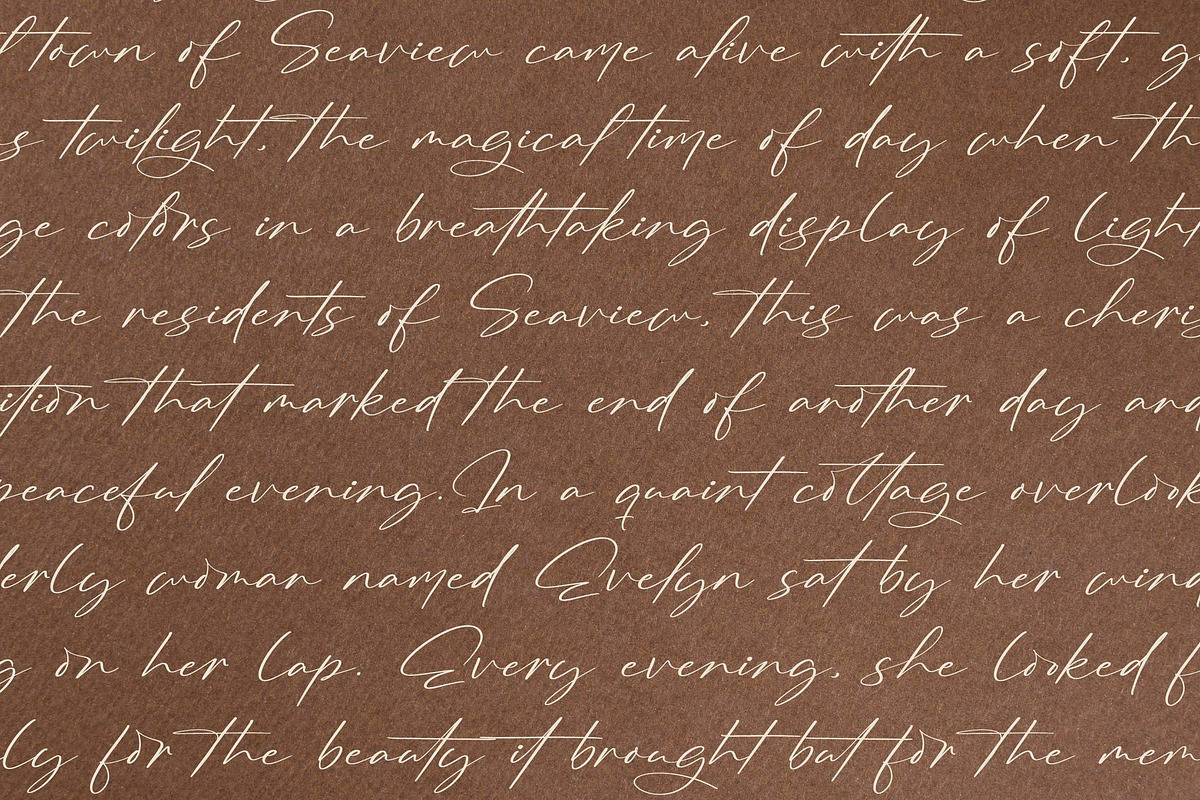 l town of Seaview came alive with a soft, g
s twilight, the magical time of day when th
ge colors in a breathtaking display of light
the residents of Seaview, this was a cheris
ition that marked the end of another day and
peaceful evening. In a quaint cottage overlook
erly woman named Evelyn sat by her wind
g on her lap. Every evening, she looked f
ly for the beauty it brought but for the mem